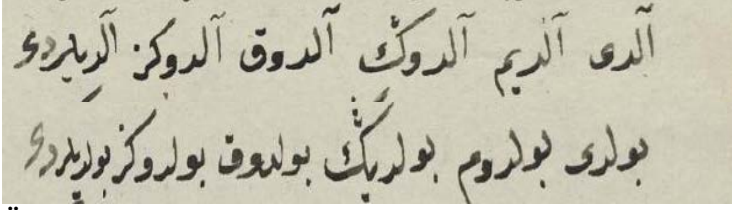 آلدی آلدیم آلدوڭ آلدوق آلدوکز آلدیلردی
بولدی بولدوم بولدیڭ بولدوق بولدوکز بولدیلردی